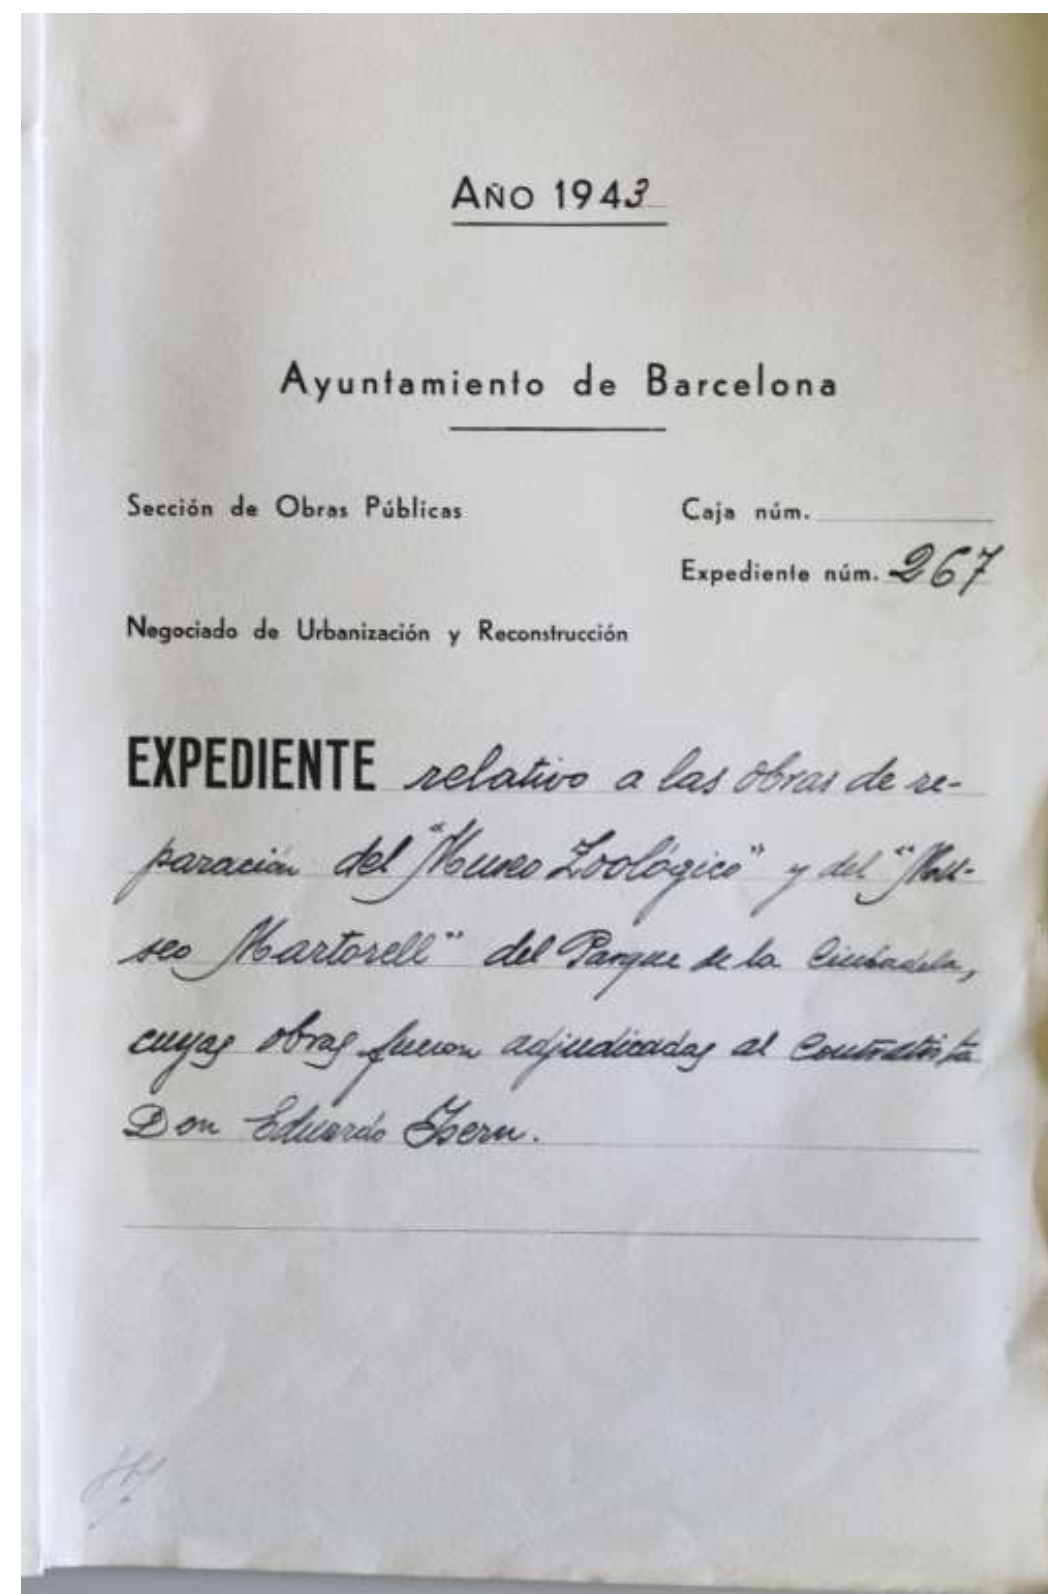 AÑO 1943
Ayuntamiento de Barcelona
Sección de Obras Públicas
Caja núm.
Expediente núm. 267
Negociado de Urbanización y Reconstrucción
EXPEDIENTE relativo a las obras de re-
paración del "Museo Zoológico" y del "Mu-
seo Martorell" del Parque de la Ciudadela,
cuyas obras fueron adjudicadas al Contratista
Don Eduardo Isern.